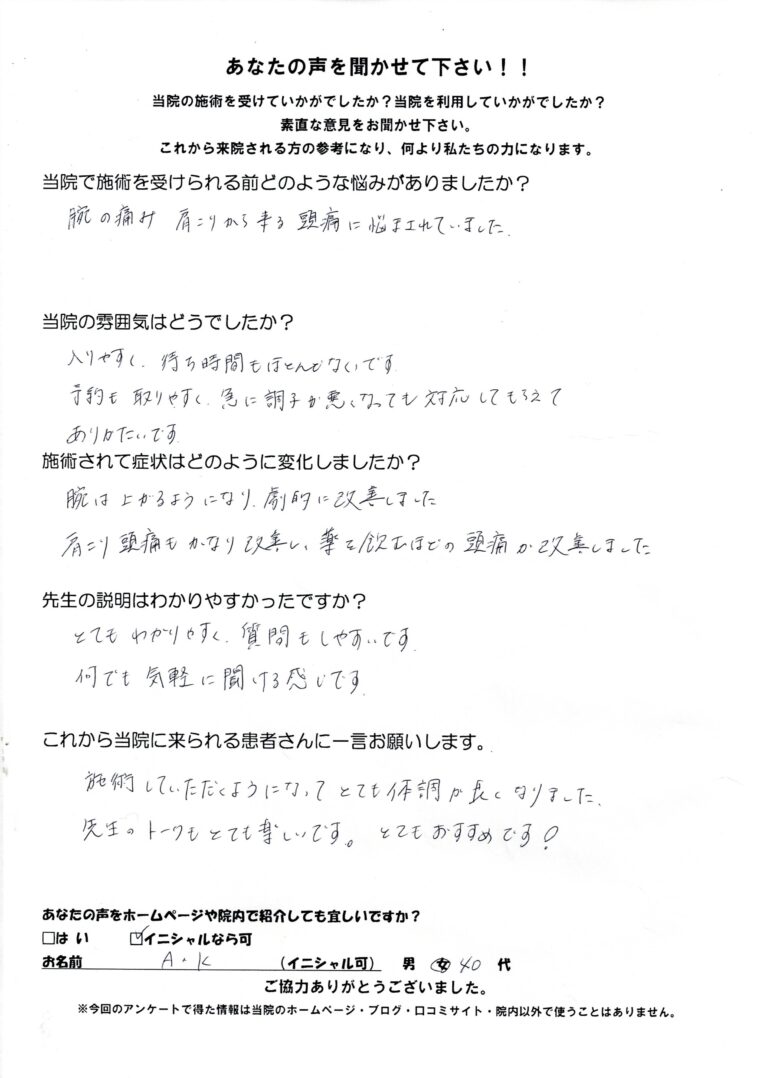 あなたの声を聞かせて下さい！！
当院の施術を受けていかがでしたか？当院を利用していかがでしたか？
素直な意見をお聞かせ下さい。
これから来院される方の参考になり、何より私たちの力になります。
当院で施術を受けられる前どのような悩みがありましたか？
腕の痛み 肩こりから来る 頭痛に悩まされていました.
当院の雰囲気はどうでしたか？
入りやすく、待ち時間もほとんどないです.
予約も 取りやすく、急に調子が悪くなっても対応してもらえて
ありがたいです.
施術されて症状はどのように変化しましたか？
腕は上がるようになり、劇的に改善しました
肩こり 頭痛も かなり改善し、薬を飲むほどの頭痛が改善しました
先生の説明はわかりやすかったですか？
とても わかりやすく、質問もしやすいです.
何でも 気軽に聞ける感じです.
これから当院に来られる患者さんに一言お願いします。
施術していただくようになって とても体調が良くなりました.
先生のトークもとても楽しいです。 とてもおすすめです！
あなたの声をホームページや院内で紹介しても宜しいですか？
□は い ☑イニシャルなら可
お名前 A・K （イニシャル可） 男 女 40 代
ご協力ありがとうございました。
※今回のアンケートで得た情報は当院のホームページ・ブログ・口コミサイト・院内以外で使うことはありません。